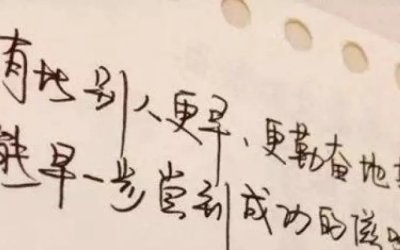 有比别人更早、更勤奋地
能早一步尝到成功的滋